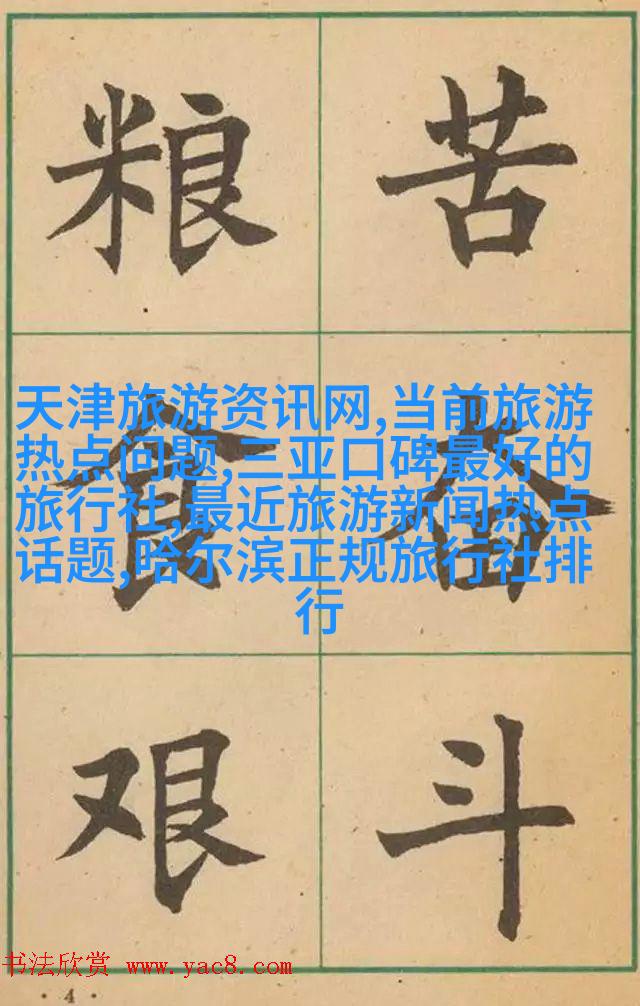 粮食艰
苦奋斗
天津旅游资讯网,当前旅游
热点问题,三亚口碑最好的
旅行社,最近旅游新闻热点
话题,哈尔滨正规旅行社排
行
书法欣赏 www.yac8.com
· 4 ·